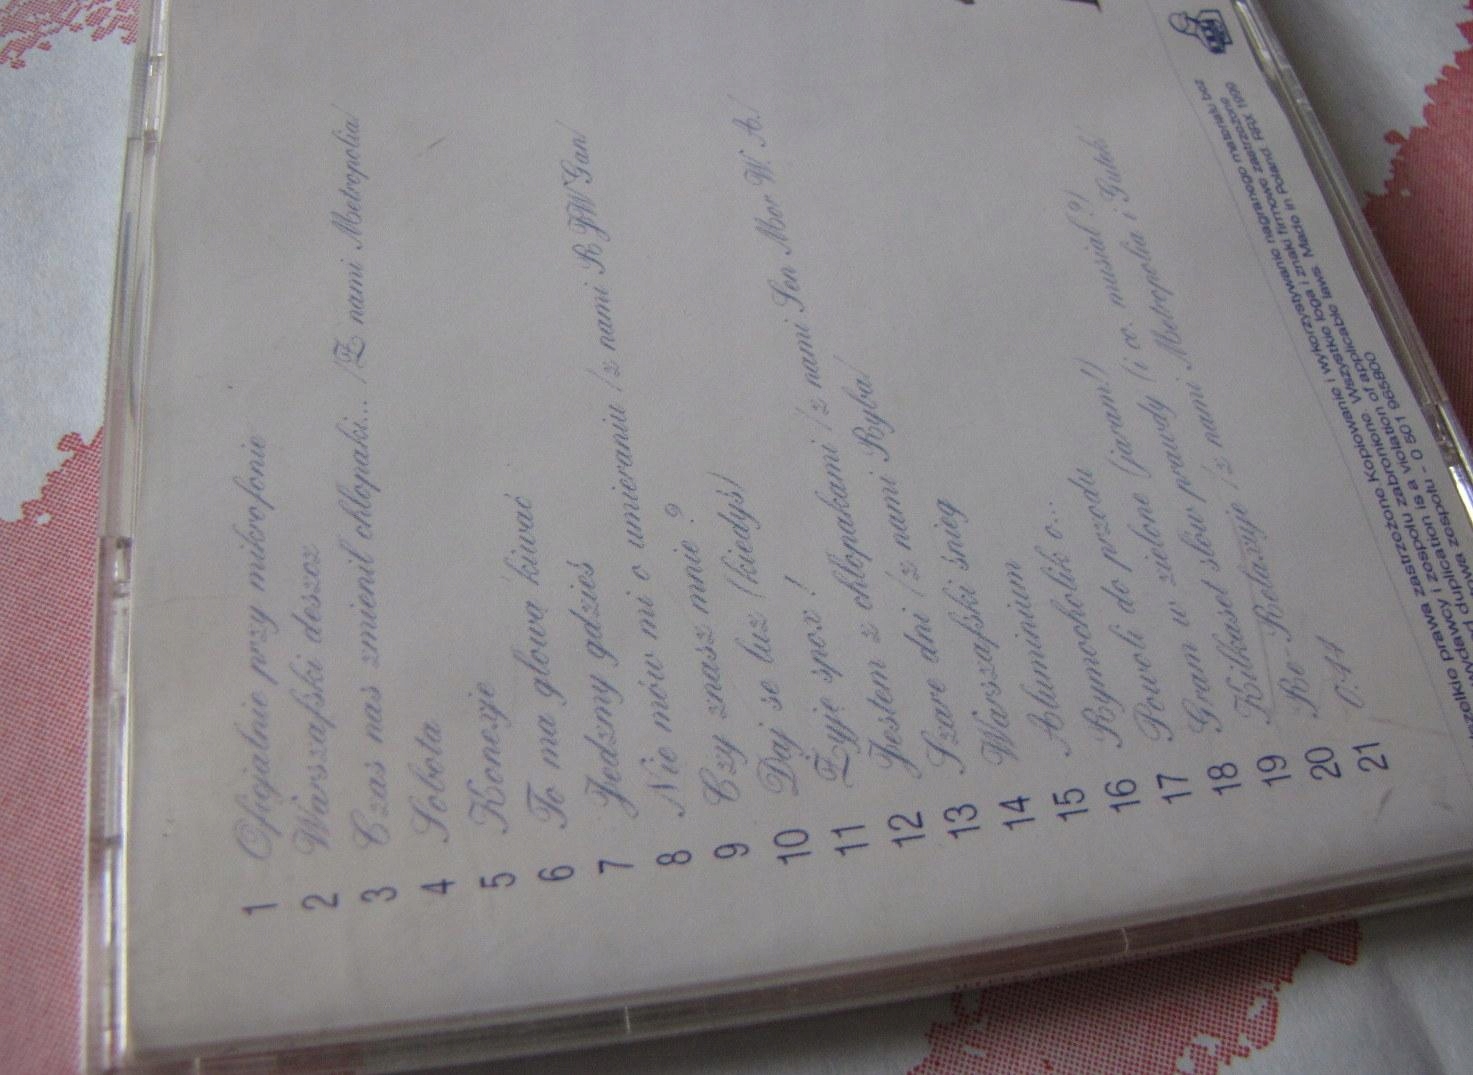 1 Oficjalnie przy mikrofonie
2 Warszafski deszcz
3 Czas nas zmienił chłopaki... /Z nami Metropolia/
4 Sobota
5 Konesje
6 To ma głową kiwać
7 Jedzmy gdzieś
8 Nie mów mi o umieraniu /z nami R.J.W. Gan/
9 Czy znasz mnie?
10 Daj se luz (kiedyś)
11 Żyję spox!
12 Jestem z chłopakami /z nami Sen Mor W. A./
13 Szare dni /z nami Ryba/
14 Warszafski śnieg
15 Aluminium
16 Rymoholik o...
17 Powoli do przodu
18 Gram w zielone (jaram!)
19 Kilkaset słów prawdy (i co, musiał?)
20 Relaxuje /z nami Metropolia i Gutek
21 Re-Relaxuje
0:44
prawa zastrzeżone Kopiowanie i wykorzystywanie nagranego materiału bez
wydawcy i zespołu zabronione. Wszystkie loga i znaki firmowe zastrzeżone
duplication is a violation of applicable laws. Made in Poland. RRX 1999
zespołu - 0 501 965800